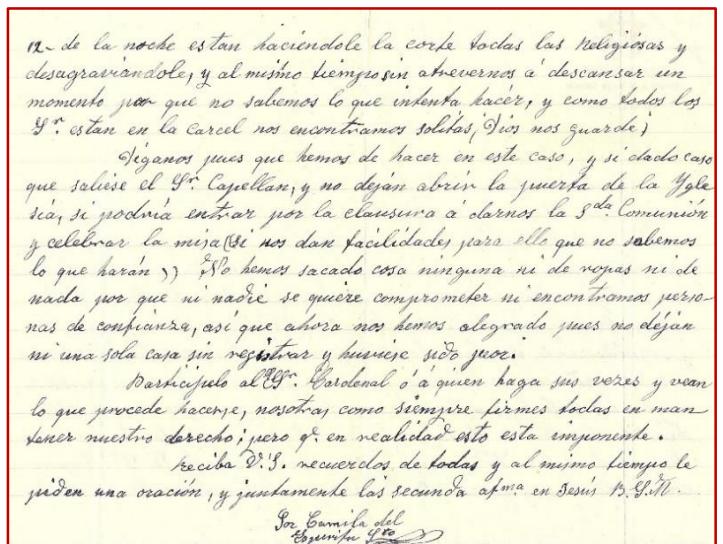 12- de la noche estan haciendole la corte todas las Religiosas y
desagraviandole, y al mismo tiempo sin atrevernos á descansar un
momento por que no sabemos lo que intenta hacér, y como todos los
Sr. estan en la carcel nos encontramos solitas, (Dios nos guarde)
Diganos pues que hemos de hacer en este caso, y si dado caso
que saliese el Sr. Capellan, y no deján abrir la puerta de la Ygle
sia, si podria entrar por la clausura á darnos la Sda. Comunión
y celebrar la misa (Si nos dan facilidades para ello que no sabemos
lo que harán)) No hemos sacado cosa ninguna ni de ropas ni de
nada por que ni nadie se quiere comprometer ni encontramos perso-
nas de confianza, asi que ahora nos hemos alegrado pues no déján
ni una sola casa sin registrar y huviese sido peor.
Participelo al Sr. Cardenal ó á quien haga sus vezes y vean
lo que procede hacerse, nosotras como siempre firmes todas en man
tener nuestro derecho; pero q. en realidad esto esta imponente.
Reciba V.S. recuerdos de todas y al mismo tiempo le
piden una oración, y juntamente las secunda afma. en Jesús B.S.M.
Sor Camila del
Espiritu Sto